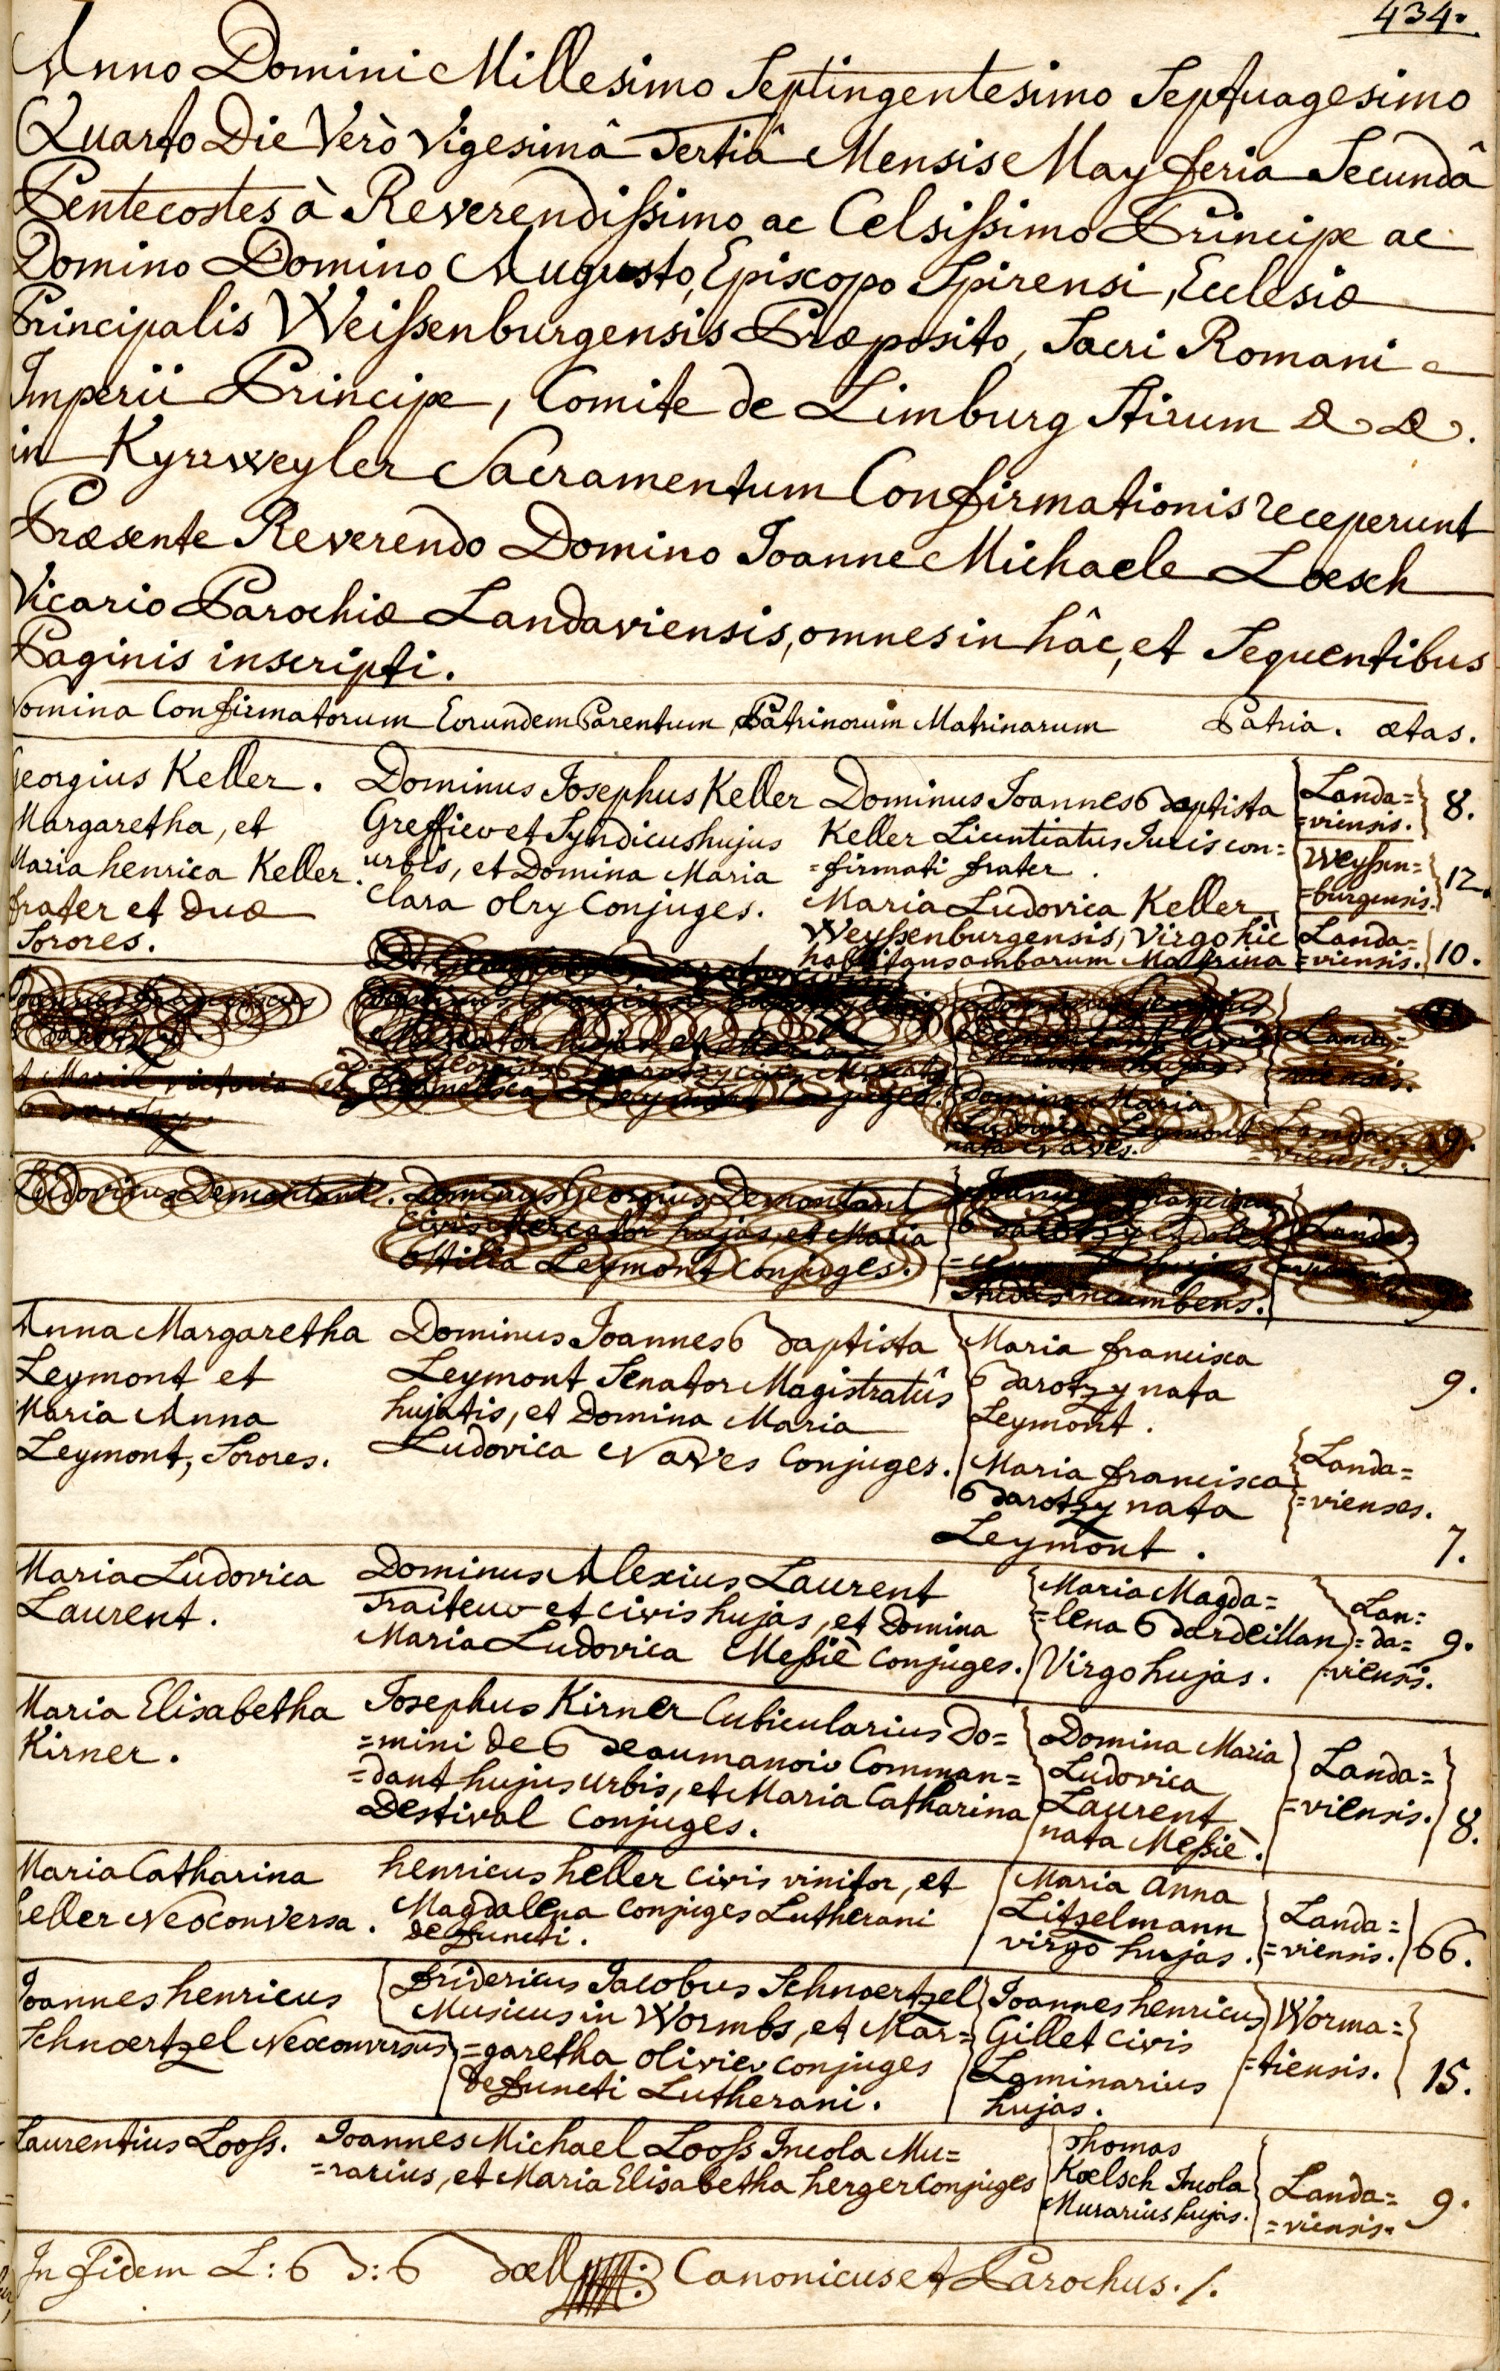 434.
Anno Domini Millesimo Septingentesimo Septuagesimo
Quarto Die Verò Vigesimâ Tertiâ Mensis May feria Secundâ
Pentecostes à Reverendissimo ac Celsissimo Principe ac
Domino Domino Augusto, Episcopo Spirensi, Ecclesiæ
Principalis Weissenburgensis Præposito, Sacri Romani
Imperii Principe, Comite de Limburg Stirum & &.
in Kyrrweyler Sacramentum Confirmationis receperunt
Præsente Reverendo Domino Ioanne Michaele Loesch
Vicario Parochiæ Landaviensis, omnes in hâc, et Sequentibus
Paginis inscripti.
Nomina Confirmatorum Eorundem Parentum Patrinorum Matrinarum Patria. ætas.
Georgius Keller.
Margaretha, et
Maria henrica Keller.
frater et duæ
Sorores.
Dominus Iosephus Keller
Greffier et Syndicus hujus
urbis, et Domina Maria
Clara Olry Conjuges.
Dominus Ioannes Baptista
Keller Licentiatus Juris con=
=firmati frater.
Maria Ludovica Keller
Weyssenburgensis, Virgo hic
habitans ambarum Matrina
Landa=
=viensis.
8.
Weyssen=
=burgensis.
12.
Landa=
=viensis.
10.
Ioannes Franciscus
et Maria victoria
Barotzy
Francisca Leymont Conjuges.
Domina Maria
Ludovica Leymont
nata Naves.
Landa=
=viensis.
Landa=
=viensis.
9.
Ludovicus Demontant.
Dominus Georgius Demontant
Civis Mercator hujas, et Maria
Ottilia Leymont Conjuges.
Ioannes Franciscus
Barotzy
Studiis incumbens.
Landa=
9.
Anna Margaretha
Leymont et
Maria Anna
Leymont, Sorores.
Dominus Ioannes Baptista
Leymont Senator Magistratûs
hujatis, et Domina Maria
Ludovica Naves Conjuges.
Maria francisca
Barotzy nata
Leymont.
Maria francisca
Barotzy nata
Leymont.
9.
Landa=
=vienses.
7.
Maria Ludovica
Laurent.
Dominus Alexius Laurent
Traiteur et civis hujas, et Domina
Maria Ludovica Messiè Conjuges.
Maria Magda=
=lena Bardeillan
Virgo hujas.
Lan=
=da=
=viensis.
9.
Maria Elisabetha
Kirner.
Iosephus Kirner Cubicularius Do=
=mini de Beaumanoir Comman=
=dant hujus urbis, et Maria Catharina
Destival Conjuges.
Domina Maria
Ludovica
Laurent
nata Messiè.
Landa=
=viensis.
8.
Maria Catharina
heller Neoconversa.
henricus heller civis vinitor, et
Magdalena Conjuges Lutherani
defuncti.
Maria Anna
Litzelmann
virgo hujas.
Landa=
=viensis.
66.
Ioannes henricus
Schnoertzel Neoconversus
fridericus Iacobus Schnoertzel
Musicus in Wormbs, et Mar=
=garetha olivier conjuges
defuncti Lutherani.
Ioannes henricus
Gillet Civis
Laminarius
hujas.
Worma=
=tiensis.
15.
Laurentius Looss.
Ioannes Michael Looss Incola Mu=
=rarius, et Maria Elisabetha herger conjuges
Thomas
Koelsch Incola
Murarius hujas.
Landa=
=viensis.
9.
In fidem L: B: Boell Canonicus et Parochus.